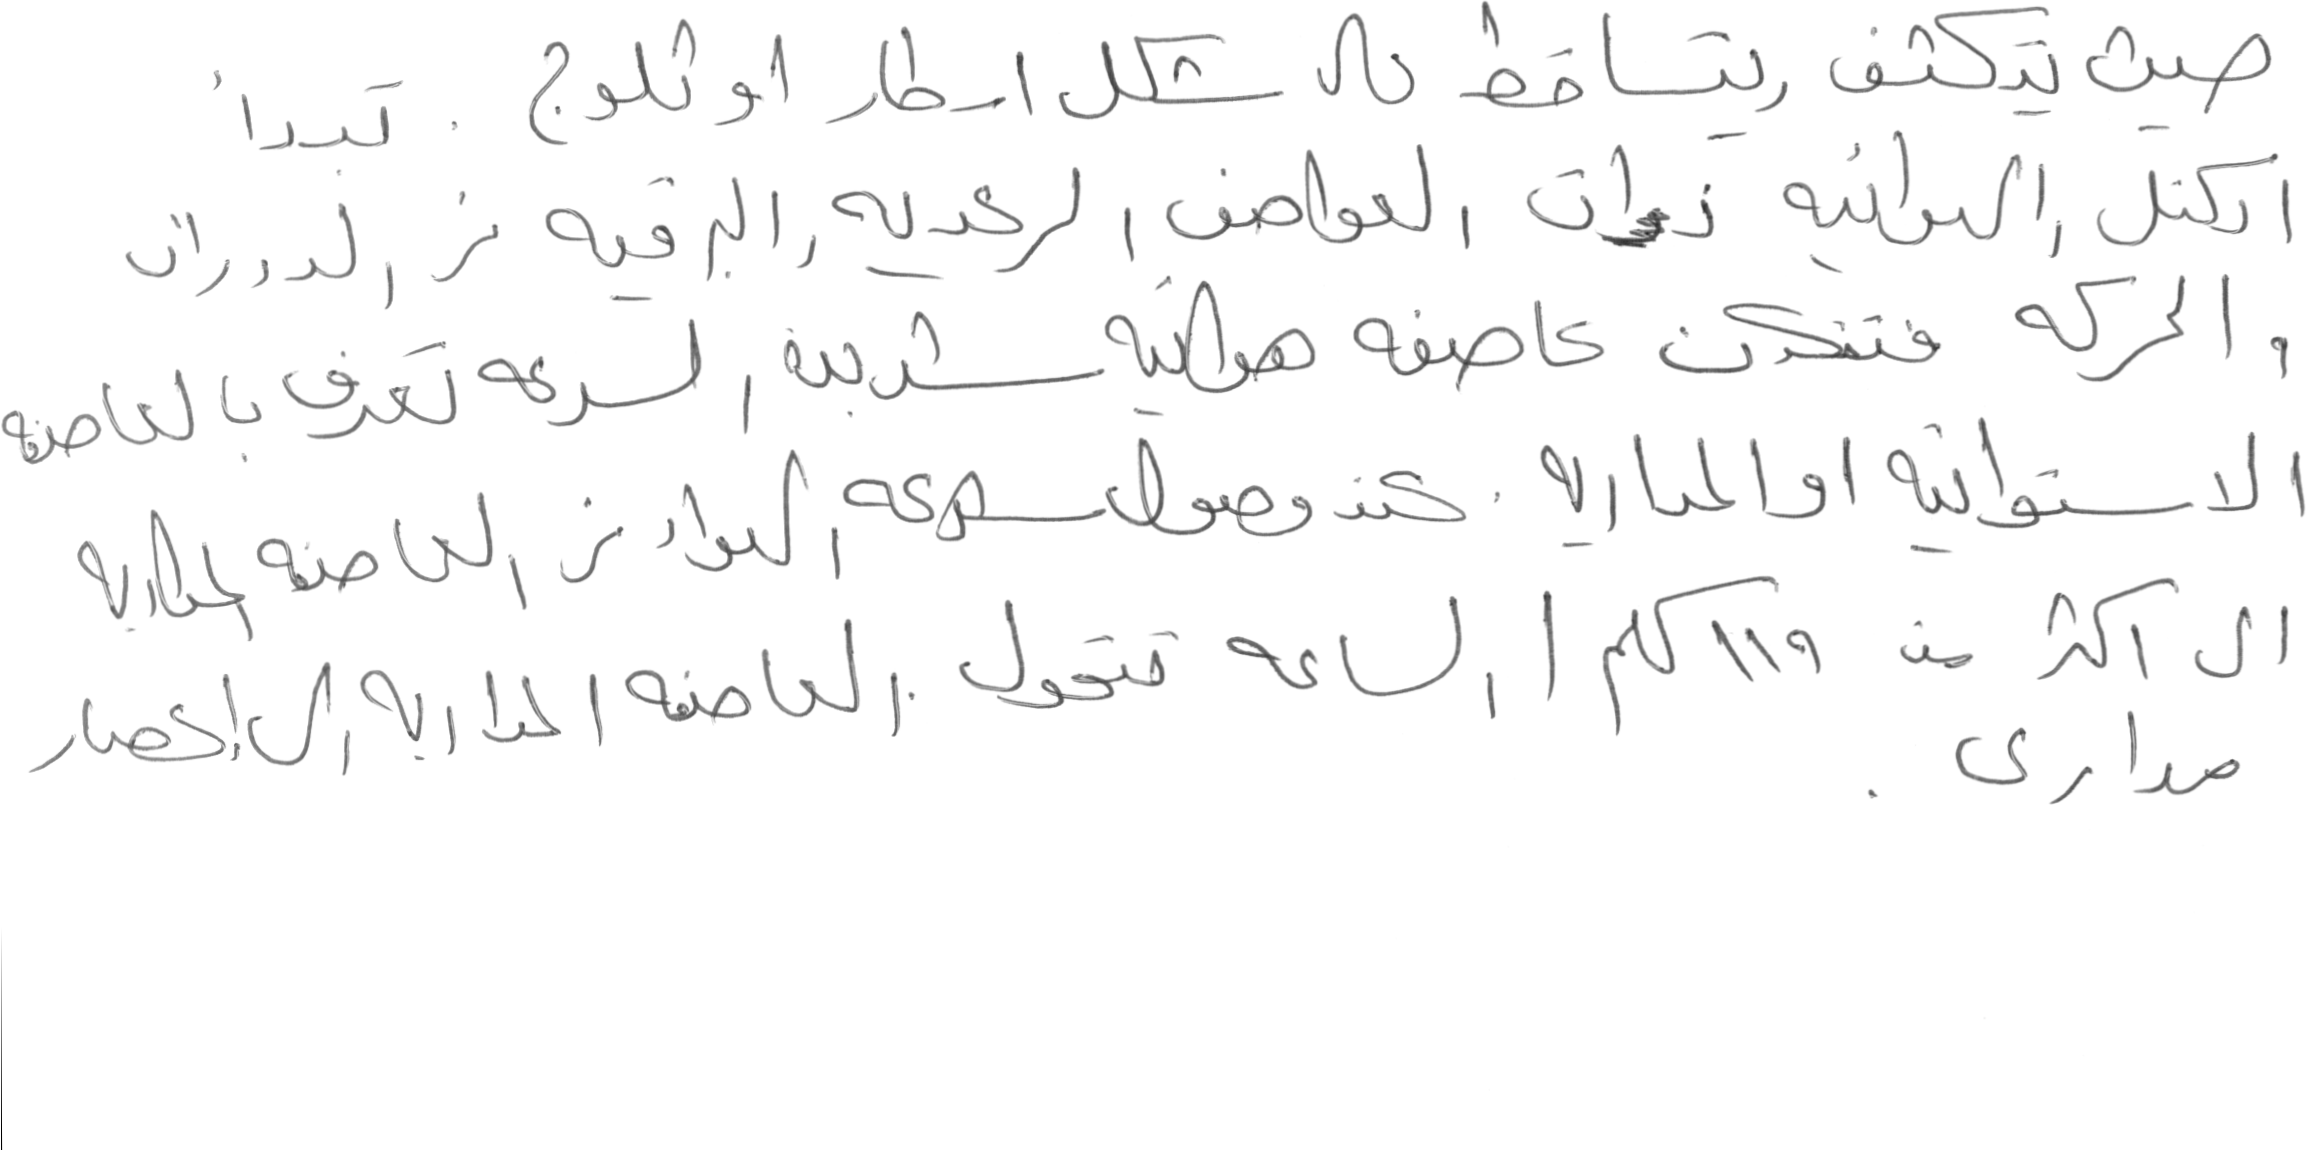 حيث يتكثف ويتساقط على شكل امطار او ثلوج . تبدأ
الكتل الهوائيه ذوات العواصف الرعديه والبرقيه في الدوران
والحركه فتتكون عاصفه هوائيه شديدة السرعه تعرف بالعاصفه
الاستوائيه او المداريه . عند وصول سرعه الهواء في العاصفه المداريه
الى اكثر من ١١٩ كلم / الساعه تتحول العاصفه المداريه الى إعصار
مدارى .